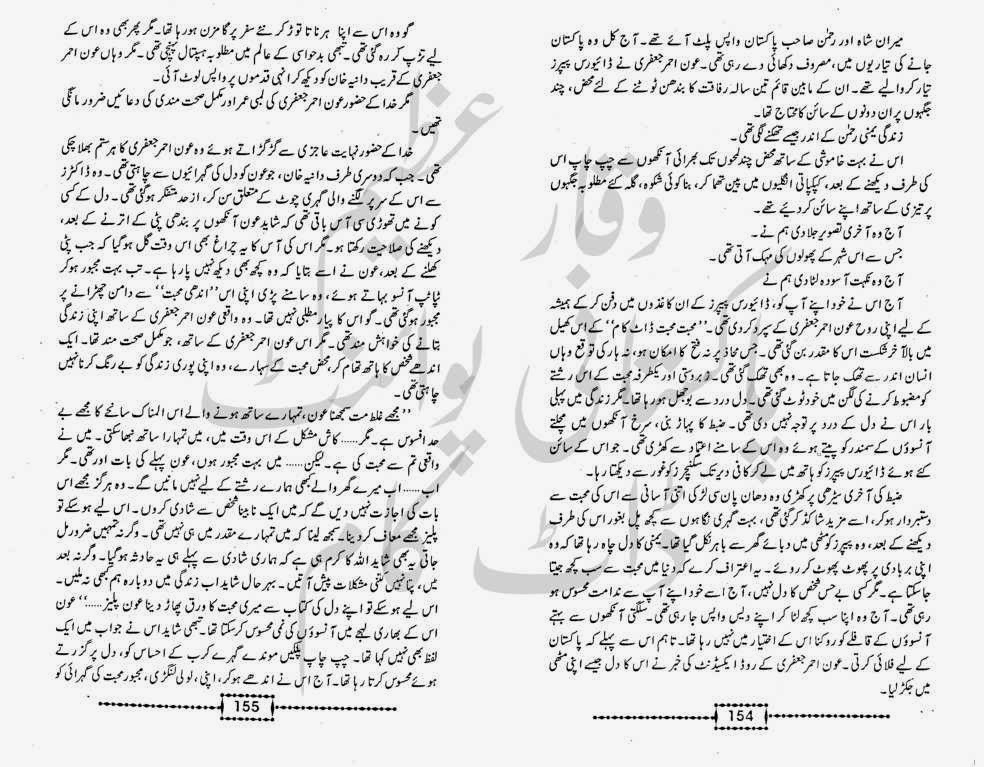 میران شاہ اور رحمٰن صاحب پاکستان واپس پلٹ آئے تھے۔ آج کل وہ پاکستان
جانے کی تیاریوں میں، مصروف دکھائی دے رہی تھی۔ عون احمر جعفری نے ڈائیورس پیپرز
تیار کروا لیے تھے۔ ان کے مابین قائم تین سالہ رفاقت کا بندھن ٹوٹنے کے لئے محض، چند
جگہوں پر ان دونوں کے سائن کا محتاج تھا۔
زندگی یمنی رحمٰن کے اندر جیسے تھکنے لگی تھی۔
اس نے بہت خاموشی کے ساتھ محض چند لمحوں تک بھرائی آنکھوں سے چپ چاپ اس
کی طرف دیکھنے کے بعد، کپکپاتی انگلیوں میں پین تھا کر، بنا کوئی شکوہ، گلہ کئے مطلوبہ جگہوں
پر تیزی کے ساتھ اپنے سائن کر دیئے تھے۔
آج وہ آخری تصویر جلا دی ہم نے۔
جس سے اس شہر کے پھولوں کی مہک آتی تھی۔
آج وہ نکہت آسودہ لٹا دی ہم نے
آج اس نے خود اپنے آپ کو، ڈائیورس پیپرز کے ان کاغذوں میں دفن کر کے ہمیشہ
کے لیے اپنی روح عون احمر جعفری کے سپرد کر دی تھی۔ ’’محبت محبت ڈاٹ کام‘‘ کے اس کھیل
میں بالآخر شکست اس کا مقدر بن گئی تھی۔ جس محاذ پر نہ فتح کا امکان ہو، نہ ہار کی توقع وہاں
انسان اندر سے تھک جاتا ہے۔ وہ بھی تھک گئی تھی۔ زبردستی اور یکطرفہ محبت کے اس رشتے
کو مضبوط کرنے کی لگن میں خود ٹوٹ گئی تھی۔ دل درد سے بوجھل ہو رہا تھا۔ مگر زندگی میں پہلی
بار اس نے دل کے درد پر توجہ نہیں دی تھی۔ ضبط کا پہاڑ بنی، سرخ آنکھوں میں مچلتے
آنسوؤں کے سمندر کو پیتے ہوئے وہ اس کے سامنے اعتماد سے کھڑی تھی۔ جو اس کے سائن
کئے ہوئے ڈائیورس پیپرز کو ہاتھ میں لے کر کافی دیر تک سگنیچرز کو غور سے دیکھتا رہا۔
ضبط کی آخری سیڑھی پر کھڑی وہ دھان پان سی لڑکی اتنی آسانی سے اس کی محبت سے
دستبردار ہو کر، اسے مزید شاکڈ کر گئی تھی، بہت گہری نگاہوں سے کچھ پل بغور اس کی طرف
دیکھنے کے بعد، وہ پیپرز کو مٹھی میں دبائے گھر سے باہر نکل گیا تھا۔ یمنی کا دل چاہ رہا تھا کہ وہ
اپنی بربادی پر پھوٹ پھوٹ کر روئے۔ یہ اعتراف کرے کہ دنیا میں محبت سے سب کچھ جیتا
جا سکتا ہے۔ مگر کسی بے حس شخص کا دل نہیں، آج اسے خود اپنے آپ سے ندامت محسوس ہو
رہی تھی۔ آج وہ اپنا سب کچھ لٹا کر اپنے دیس واپس جا رہی تھی۔ سلگتی آنکھوں سے بہتے
آنسوؤں کے قافلے کو روکنا اس کے اختیار میں نہیں رہا تھا۔ تاہم اس سے پہلے کہ پاکستان
کے لیے فلائی کرتی۔ عون احمر جعفری کے روڈ ایکسیڈنٹ کی خبر نے اس کا دل جیسے اپنی مٹھی
میں جکڑ لیا۔
154
گو وہ اس سے اپنا ہر ناتا توڑ کر نئے سفر پر گامزن ہو رہا تھا۔ مگر پھر بھی وہ اس کے
لیے تڑپ کر رہ گئی تھی۔ تبھی بدحواسی کے عالم میں مطلوبہ ہسپتال پہنچی تھی۔ مگر وہاں عون احمر
جعفری کے قریب دانیہ خان کو دیکھ کر انہی قدموں پر واپس لوٹ آئی۔
مگر خدا کے حضور عون احمر جعفری کی لمبی عمر اور مکمل صحت مندی کی دعائیں ضرور مانگی
تھیں۔
خدا کے حضور نہایت عاجزی سے گڑگڑاتے ہوئے وہ عون احمر جعفری کا ہر ستم بھلا چکی
تھی۔ جب کہ دوسری طرف دانیہ خان، جو عون کو دل کی گہرائیوں سے چاہتی تھی۔ وہ ڈاکٹرز
سے اس کے سر پر لگنے والی گہری چوٹ کے متعلق سن کر، از حد متفکر ہو گئی تھی۔ دل کے کسی
کونے میں تھوڑی سی آس باقی تھی کہ شاید عون آنکھوں پر بندھی پٹی کے اترنے کے بعد،
دیکھنے کی صلاحیت رکھتا ہو۔ مگر اس کی آس کا یہ چراغ بھی اس وقت گل ہو گیا کہ جب پٹی
کھلنے کے بعد، عون نے اسے بتایا کہ وہ کچھ بھی دیکھ نہیں پا رہا ہے۔ تب بہت مجبور ہو کر
ٹپاٹپ آنسو بہاتے ہوئے، وہ سامنے پڑی اپنی اس ’’اندھی محبت‘‘ سے دامن چھڑانے پر
مجبور ہو گئی تھی۔ گو اس کا پیار مطلبی نہیں تھا۔ وہ واقعی عون احمر جعفری کے ساتھ اپنی زندگی
بتانے کی خواہش مند تھی۔ مگر اس عون احمر جعفری کے ساتھ، جو مکمل صحت مند تھا۔ ایک
اندھے شخص کا ہاتھ تھام کر، محض محبت کے سہارے، وہ اپنی پوری زندگی کو بے رنگ کرنا نہیں
چاہتی تھی۔
’’مجھے غلط مت سمجھنا عون، تمہارے ساتھ ہونے والے اس المناک سانحے کا مجھے بے
حد افسوس ہے۔ مگر...... کاش مشکل کے اس وقت میں، میں تمہارا ساتھ نبھا سکتی۔ میں نے
واقعی تم سے محبت کی ہے۔ لیکن...... میں بہت مجبور ہوں، عون پہلے کی بات اور تھی۔ مگر
اب...... اب میرے گھر والے کبھی ہمارے رشتے کے لیے نہیں مانیں گے۔ وہ ہرگز مجھے اس
بات کی اجازت نہیں دیں گے کہ میں ایک نابینا شخص سے شادی کروں۔ اس لیے ہو سکے تو
پلیز مجھے معاف کر دینا۔ سمجھ لینا کہ میں تمہارے مقدر میں ہی نہیں تھی۔ وگرنہ تمہیں ضرور مل
جاتی یہ بھی شاید اللہ کا کرم ہی ہے کہ ہماری شادی سے پہلے ہی یہ حادثہ ہو گیا۔ وگرنہ بعد
میں، پتا نہیں کتنی مشکلات پیش آتیں۔ بہر حال شاید اب زندگی میں دوبارہ ہم کبھی نہ ملیں۔
اس لیے ہو سکے تو اپنے دل کی کتاب سے میری محبت کا ورق پھاڑ دینا عون پلیز......‘‘ عون
اس کے بھاری لہجے میں آنسوؤں کی نمی محسوس کر سکتا تھا۔ تبھی شاید اس نے جواب میں ایک
لفظ بھی نہیں کہا تھا۔ چپ چاپ پلکیں موندے گہرے کرب کے احساس کو، دل پر گزرتے
ہوئے محسوس کرتا رہا تھا۔ آج اس نے اندھے ہو کر، اپنی، لولی لنگڑی، مجبور محبت کی گہرائی کو
155
وقار عظیم
پاکستانی پوائنٹ
ڈاٹ کام